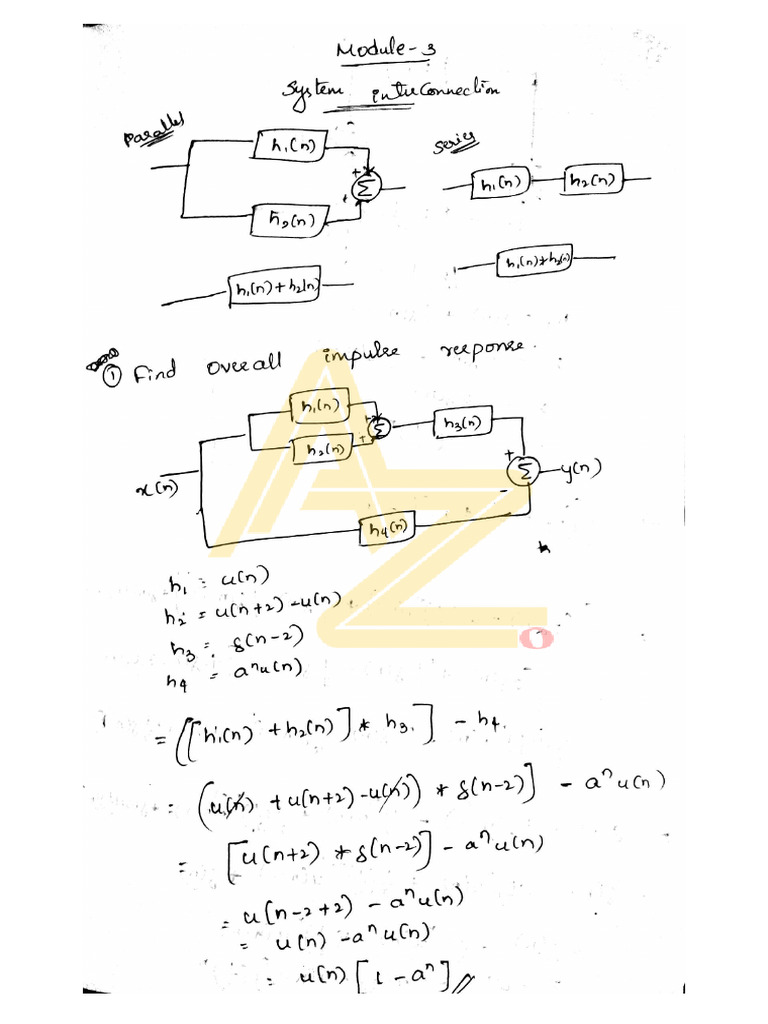 Module-3
System interconnection
Parallel
h₁(n)
Σ
+
+
h₂(n)
h₁(n)+h₂(n)
Series
h₁(n)
h₂(n)
h₁(n)*h₂(n)
① Find overall impulse response.
h₁(n)
h₂(n)
Σ
+
+
h₃(n)
x(n)
+
Σ
-
y(n)
h₄(n)
h₁ = u(n)
h₂ = u(n+2)-u(n)
h₃ = δ(n-2)
h₄ = aⁿu(n)
= ([h₁(n) + h₂(n)] * h₃] - h₄
= (u(n) + u(n+2) - u(n)) * δ(n-2)] - aⁿu(n)
= [u(n+2) * δ(n-2)] - aⁿu(n)
= u(n-2+2) - aⁿu(n)
= u(n) - aⁿu(n)
= u(n) [1 - aⁿ]//
AZ